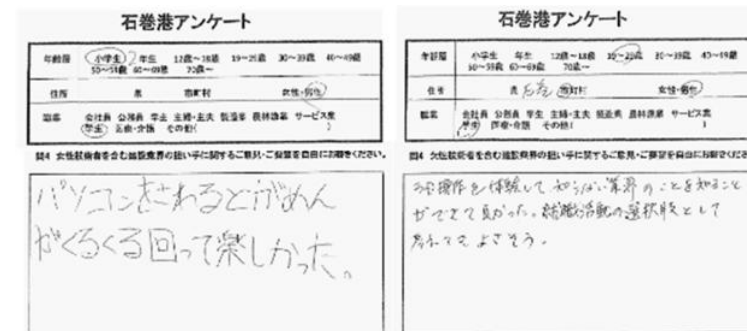 石巻港アンケート
年齢層 小学生 年生 12歳～18歳 19～29歳 30～39歳 40～49歳
50～59歳 60～69歳 70歳～
住所 県 市町村 女性・男性
職業 会社員 公務員 学生 主婦・主夫 製造業 農林漁業 サービス業
(学生) 医療・介護 その他( )
問4 女性技術者を含む建設業界の担い手に関するご意見・ご要望を自由にお聞きください。
パソコンをさわるとがめん
がくるくる回って楽しかった。
石巻港アンケート
年齢層 小学生 年生 12歳～18歳 19～29歳 30～39歳 40～49歳
50～59歳 60～69歳 70歳～
住所 県 石巻 市町村 女性・男性
職業 会社員 公務員 学生 主婦・主夫 製造業 農林漁業 サービス業
(学生) 医療・介護 その他( )
問4 女性技術者を含む建設業界の担い手に関するご意見・ご要望を自由にお聞きくださ
操作を体験して知らない業界のことを知ること
ができて良かった。就職活動の選択肢として
よさそう。